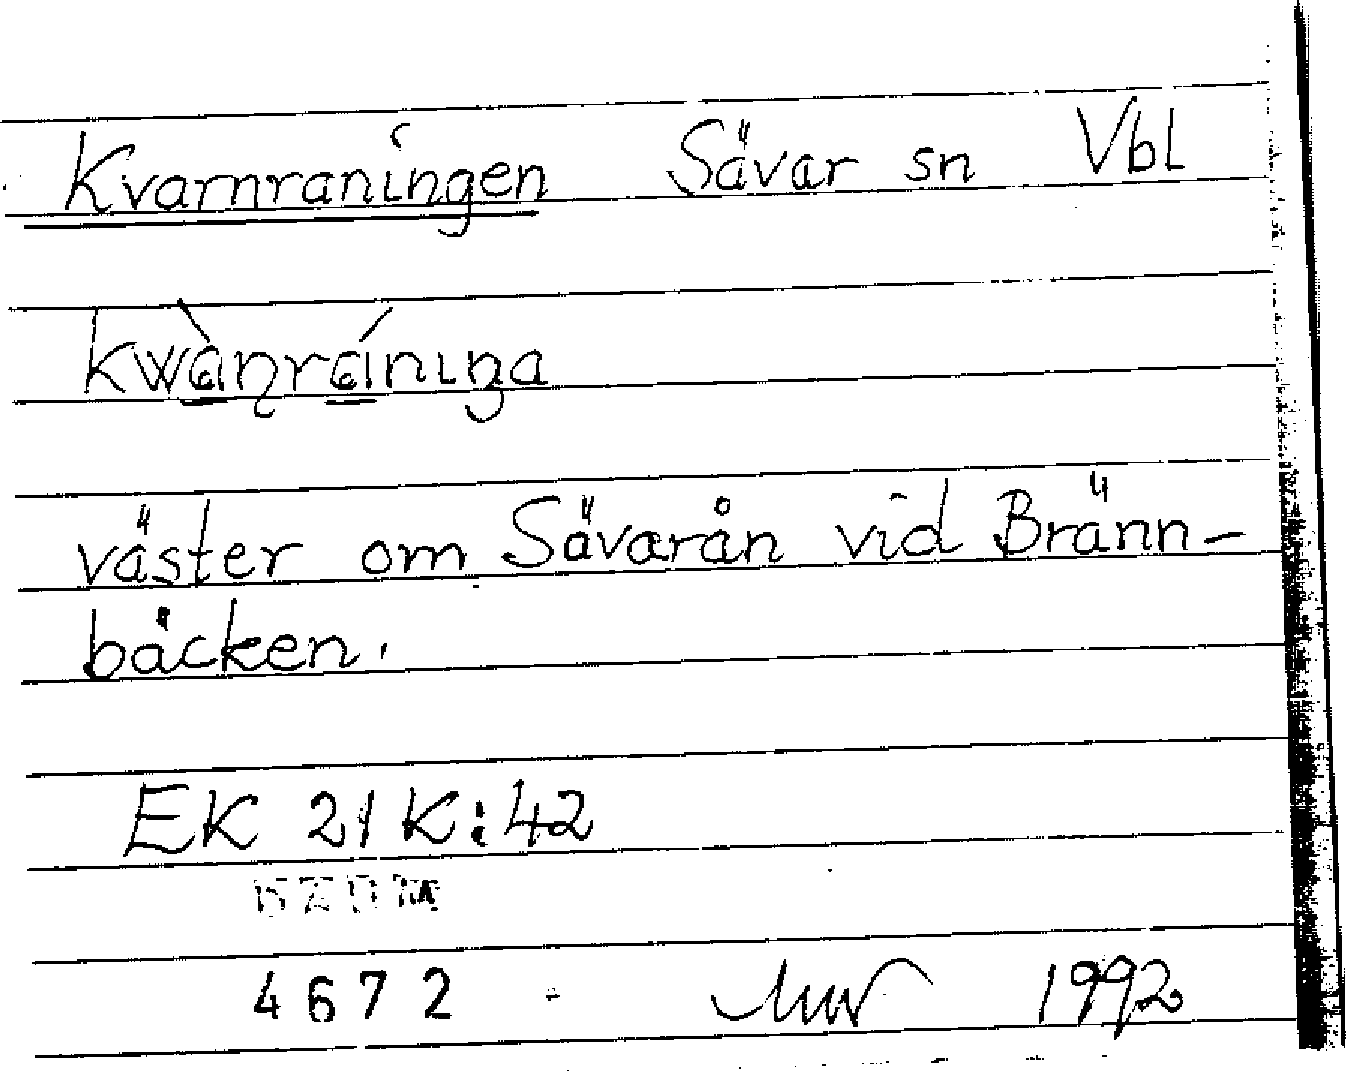 Kvarnraningen Sävar sn Vbl
väster om Sävarån vid Bränn-
bäcken.
EK 21K:42
4672 1992